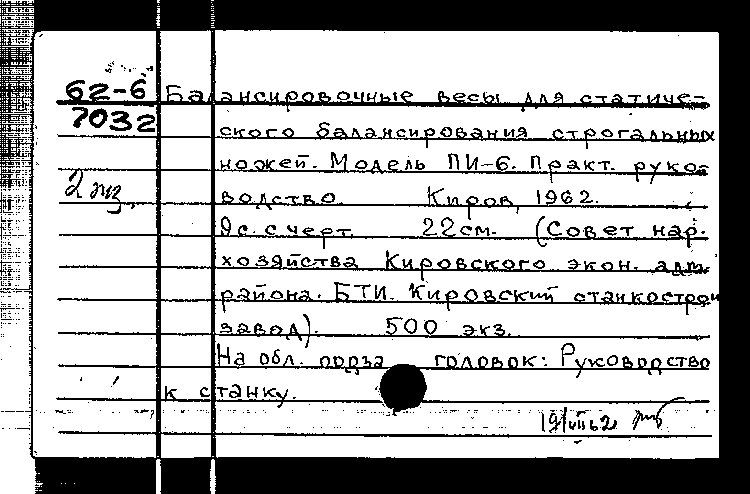 62-6 Балансировочные весы для статиче-
7032 ского балансирования строгальных
ножей. Модель ПИ-6. Практ. руко-
2 экз. водство. Киров, 1962.
9с. с черт. 22см. (Совет нар.
хозяйства Кировского экон. адм.
района. БТИ. Кировский станкострои
завод). 500 экз.
На обл. подза головок: Руководство
к станку.
19/VII 62